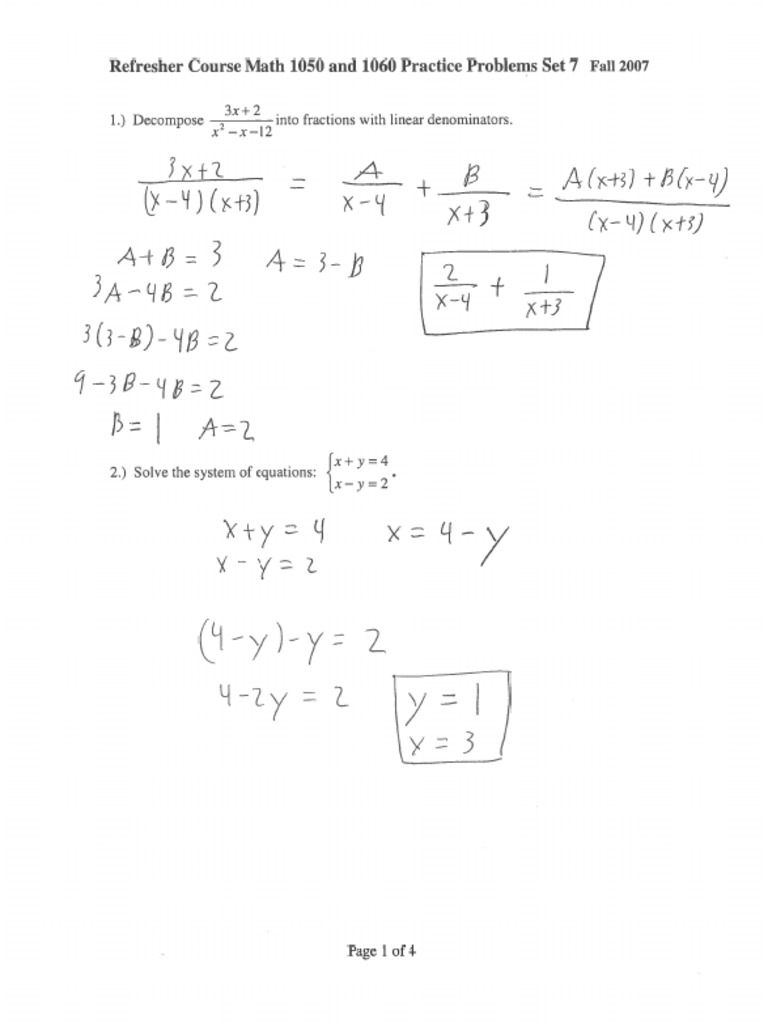 Refresher Course Math 1050 and 1060 Practice Problems Set 7 Fall 2007
1.) Decompose (3x+2)/(x²-x-12) into fractions with linear denominators.
(3x+2)/((x-4)(x+3)) = A/(x-4) + B/(x+3) = (A(x+3)+B(x-4))/((x-4)(x+3))
A+B = 3 A = 3-B
3A-4B = 2
2/(x-4) + 1/(x+3)
3(3-B)-4B = 2
9-3B-4B = 2
B = 1 A = 2
2.) Solve the system of equations: { x+y=4
x-y=2 .
x+y = 4 x = 4-y
x-y = 2
(4-y)-y = 2
4-2y = 2
y = 1
x = 3
Page 1 of 4